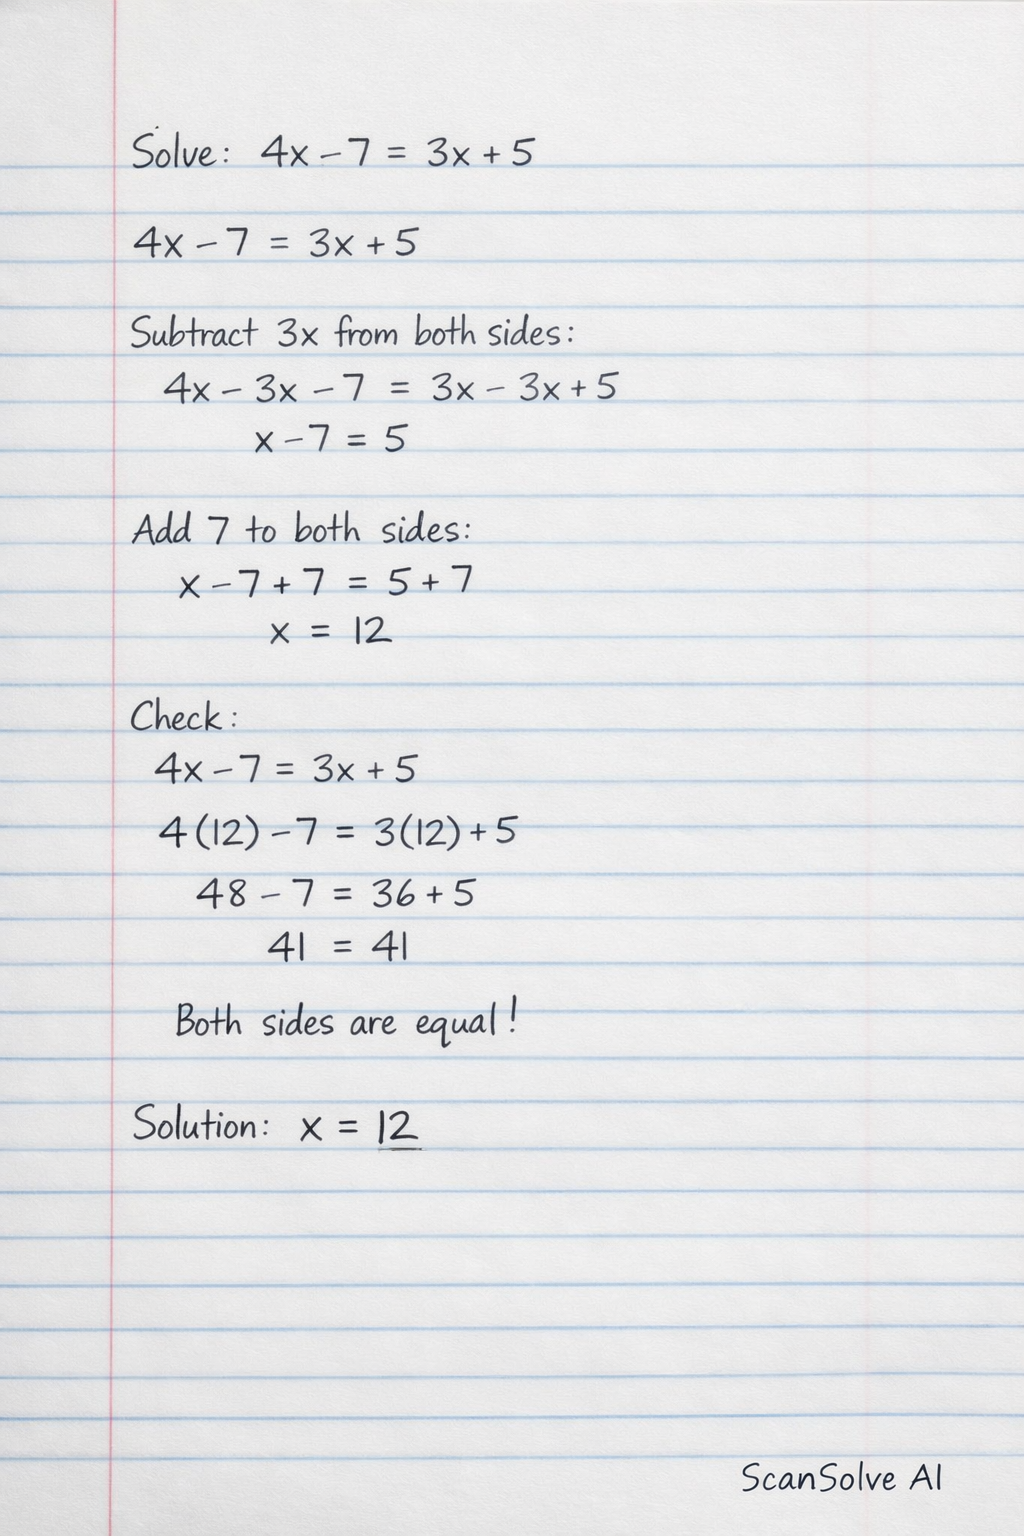 Solve: 4x - 7 = 3x + 5
4x - 7 = 3x + 5
Subtract 3x from both sides:
4x - 3x - 7 = 3x - 3x + 5
x - 7 = 5
Add 7 to both sides:
x - 7 + 7 = 5 + 7
x = 12
Check:
4x - 7 = 3x + 5
4(12) - 7 = 3(12) + 5
48 - 7 = 36 + 5
41 = 41
Both sides are equal!
Solution: x = 12
ScanSolve AI